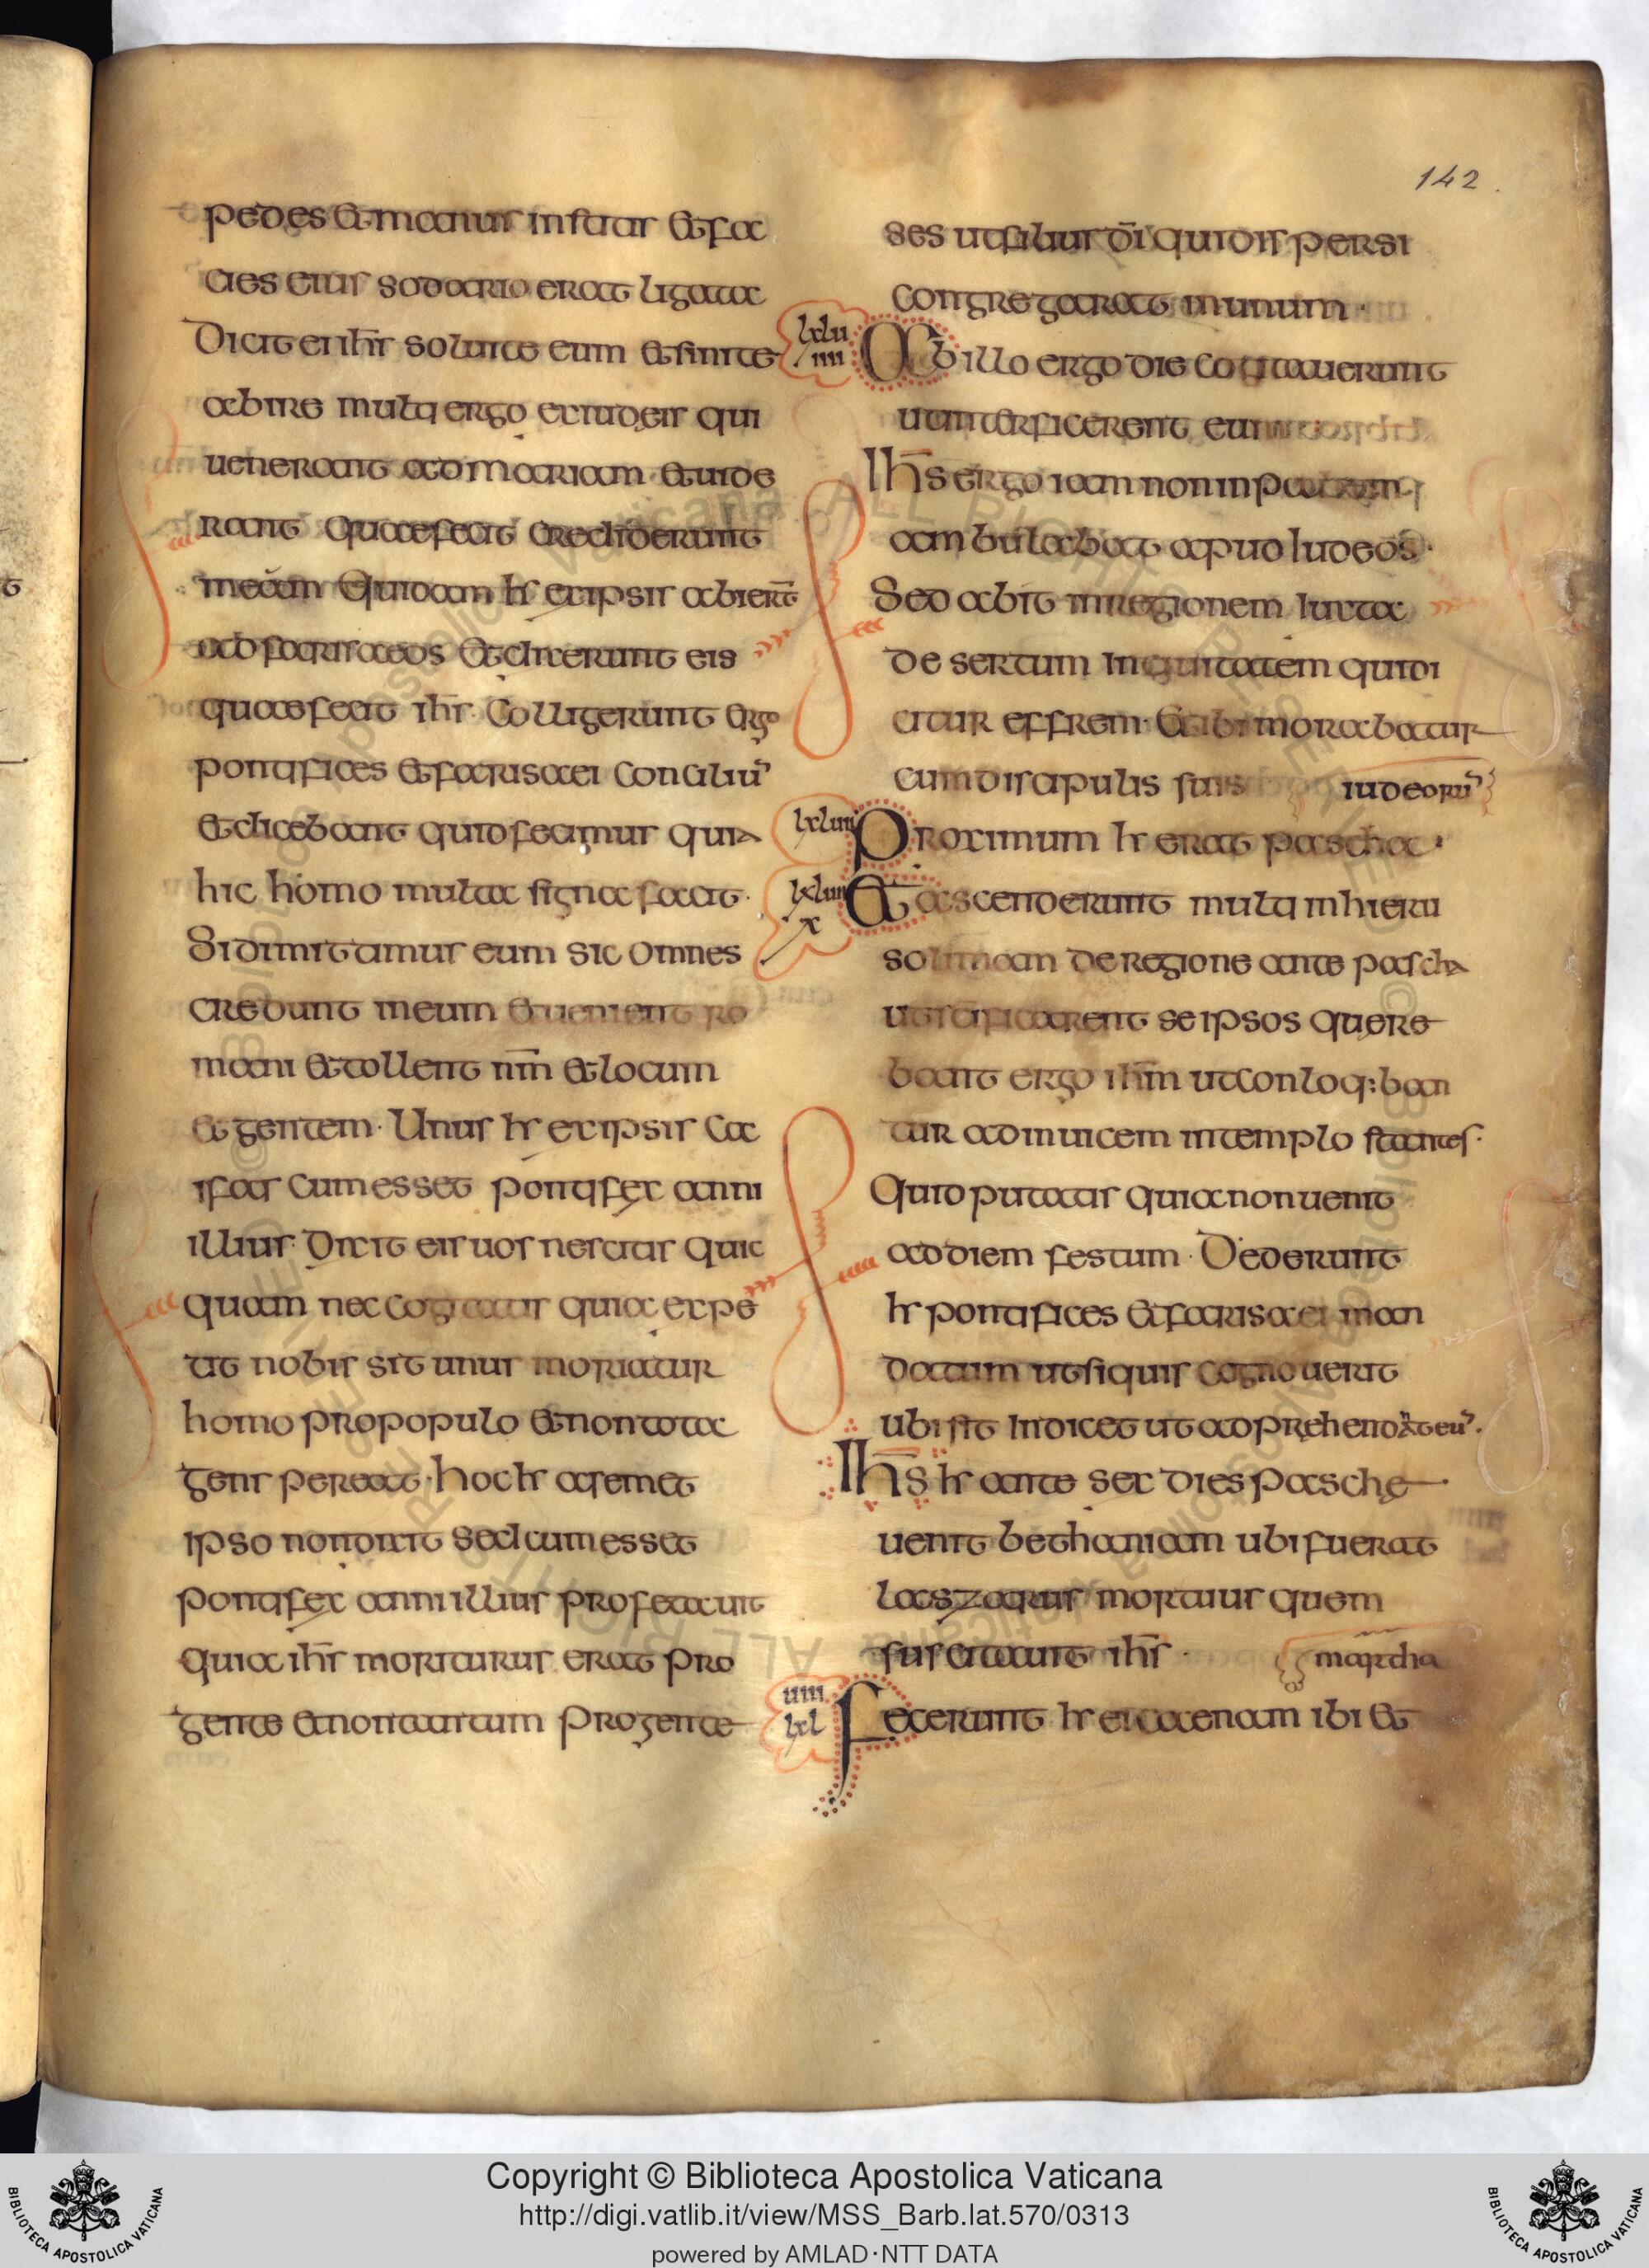 142
pedes & manus instatis & fa
cies eius sodario erat ligata
Dicit ei ihs̄ soluite eum & sinite
abire multi ergo ex iudeis qui
uenerant ad mariam & uide
rant quae fecit crediderunt
in eum Quidam hr ex ipsis abiert̄
ad farisaeos & dixerunt eis
quae fecit ihs̄· Colligerunt ergo
pontifices & farisaei conciliū
& dicebant quid facimus quia
hic homo multa signa facit·
Si dimittimus eum sic omnes
credunt in eum & uenient ro
mani & tollent nm̄ & locum
& gentem· Unus hr ex ipsis ca
ifas cum esset pontifex anni
illius· Dixit eis uos nescitis quic
quam nec cogitatis quia expe
dit nobis sit unus moriatur
homo pro populo & non tota
gens pereat· hoc hr a semet
ipso non dixit sed cum esset
pontifex anni illius profetauit
quia ihs̄ moriturus erat pro
gente & non tantum pro gente
ses ut filius dī qui dispersi
congregarat in unum·
lxlu
iiii
Ab illo ergo die cogitauerunt
ut interficerent eum
Ih̄s ergo iam non in
ambulabat apud iudeos·
Sed abit in regionem iuxta
desertum in quitatem qui di
citur effrem· & ibi morabatur
cum discipulis suis
iudeorū
Proximum hr erat pascha·
& ascenderunt multi in hieru
solimam de regione ante pascha
ut scificarent se ipsos quere
bant ergo ihm̄ ut conloq:ban
tur ad inuicem in templo stantes·
Quid putatis quia non uenit
ad diem festum· Dederunt
hr pontifices & farisaei man
datum ut si quis cognouerit
ubi sit indicet ut adprehendāt eū·
Ih̄s hr ante sex dies pasche·
uenit bethaniam ubi fuerat
laszarus mortuus quem
suscitauit ihs̄·
martha
iiii
lxl
Fecerunt hr ei caenam ibi &
Copyright © Biblioteca Apostolica Vaticana
http://digi.vatlib.it/view/MSS_Barb.lat.570/0313
powered by AMLAD·NTT DATA
BIBLIOTECA APOSTOLICA VATICANA
BIBLIOTECA APOSTOLICA VATICANA